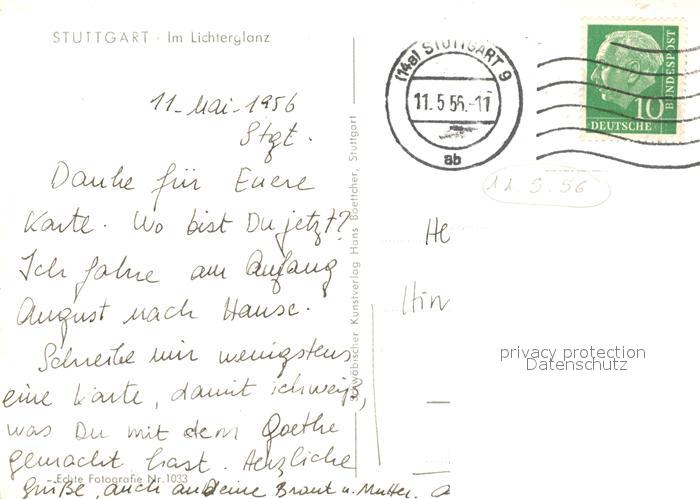 STUTTGART · Im Lichterglanz
11. Mai. 1956
Stgt.
Danke für Euere
Karte. Wo bist Du jetzt?
Ich fahre am Anfang
August nach Hause.
Schreibe mir wenigstens
eine Karte, damit ich weiß,
was Du mit dem Goethe
gemacht hast. Herzliche
Grüße, auch an deine Braut u. Mutter.
Echte Fotografie Nr. 1033
Schwäbischer Kunstverlag Hans Boettcher, Stuttgart
(14a) STUTTGART 9
11.5.56.-17
ab
DEUTSCHE
BUNDESPOST
10
11.5.56
He
Hin
privacy protection
Datenschutz